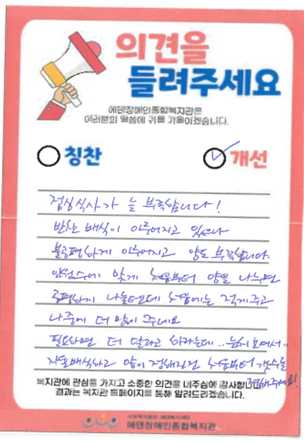 의견을
들려주세요
에덴장애인종합복지관은
여러분의 말씀에 귀를 기울이겠습니다.
칭찬
개선
점심식사가 늘 부족합니다!
반찬 배식이 이루어지고 있으나
불공평하게 이루어지고 양도 부족합니다
인원수에 맞게 처음부터 양별 나누면
공평하게 나눌텐데 처음에는 적게주고
나중에 더 많이 주네요
필요하면 더 달라고 하라는데..
자율배식하고 양이 정해진건 처음부터
정해주세요!
복지관에 관심을 가지고 소중한 의견을 내주심에 감사합니다.
결과는 복지관 홈페이지를 통해 알려드리겠습니다.
에덴장애인종합복지관